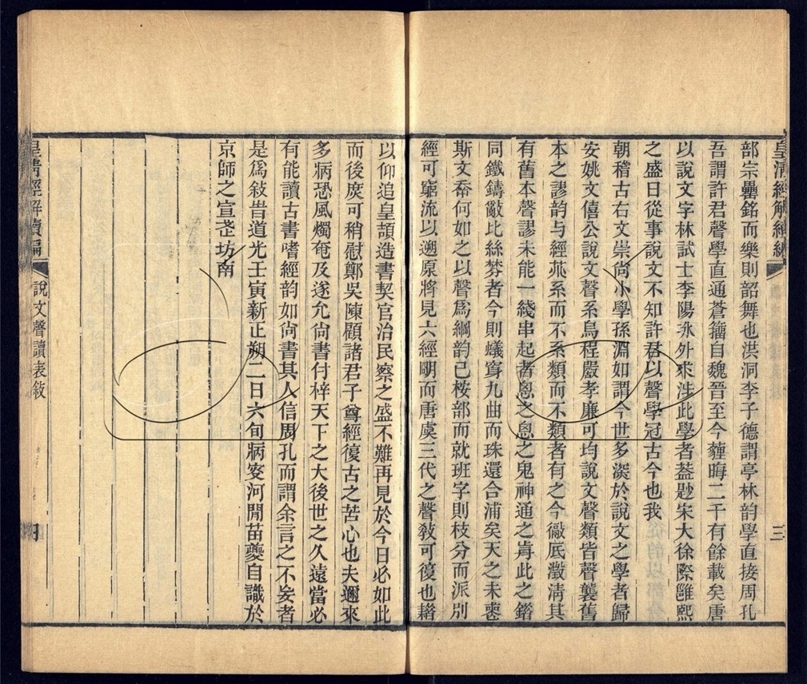 皇清經解續編
三
部宗罍銘而樂則韶舞也洪洞李子德謂亭林韵學直接周孔
吾謂許君聲學直通蒼籀自魏晉至今薶晦二千有餘載矣唐
以說文字林試士李陽冰外來涉此學者葢尟宋大徐際雝熙
之盛日從事說文不知許君以聲學冠古今也我
朝稽古右文崇尙小學孫淵如謂今世多深於說文之學者歸
安姚文僖公說文聲系烏程嚴孝廉可均說文聲類皆聲襲舊
本之謬韵与經菰系而不系類而不類者有之今徹底澂淸其
有舊本聲謬未能一綫串起者息之息之鬼神通之肯此之錯
同鐵鑄㪣比絲棼者今則蟻穿九曲而珠還合浦矣天之未喪
斯文㖊何如之以聲爲綱韵己桉部而就班字則枝分而派別
經可窮流以遡原將見六經朙而唐虞三代之聲敎可復也藉
以仰追皇頡造書契官治民察之盛不難再見於今日必如此
而後庻可稍慰鄭吳陳顧諸君子尊經復古之苦心也夫邇來
多病恐風燭奄及遂允尙書付梓天下之大後世之久遠當必
有能讀古書嗜經韵如尙書其人信周孔而謂余言之不妄者
是爲敍旹道光壬寅新正朔二日六旬病叜河閒苗夔自識於
京師之宣武坊南
皇淸經解續編
說文聲讀表敍